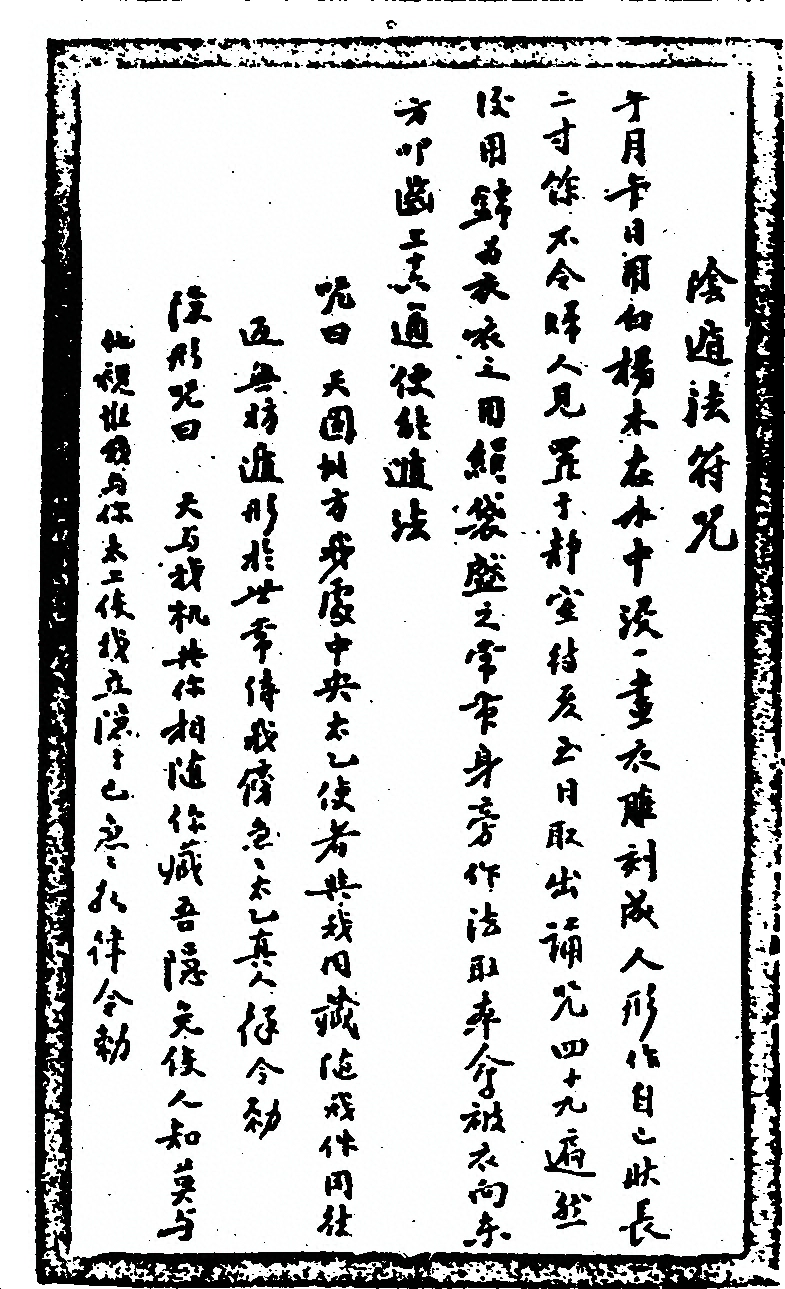 陰遁法符咒
午月午日用白楊木在水中浸一晝衣雕刻成人形作自己狀長
二寸餘不令婦人見置于靜室待亥日取出誦咒四十九遍然
後用錦為衣衣之用絹袋盛之常帶身旁作法取本命被衣向东
方叩齒通便能遁法
咒曰 天圆地方我處中央太乙使者與我同藏隨我伴同往
返無妨遁形於世常侍我傍急〻太乙真人律令勅
隱形咒曰 天与我机共你相隨你藏吾隱免使人知莫与
他視惟我与你太上使我立隱〻己急〻如律令勅